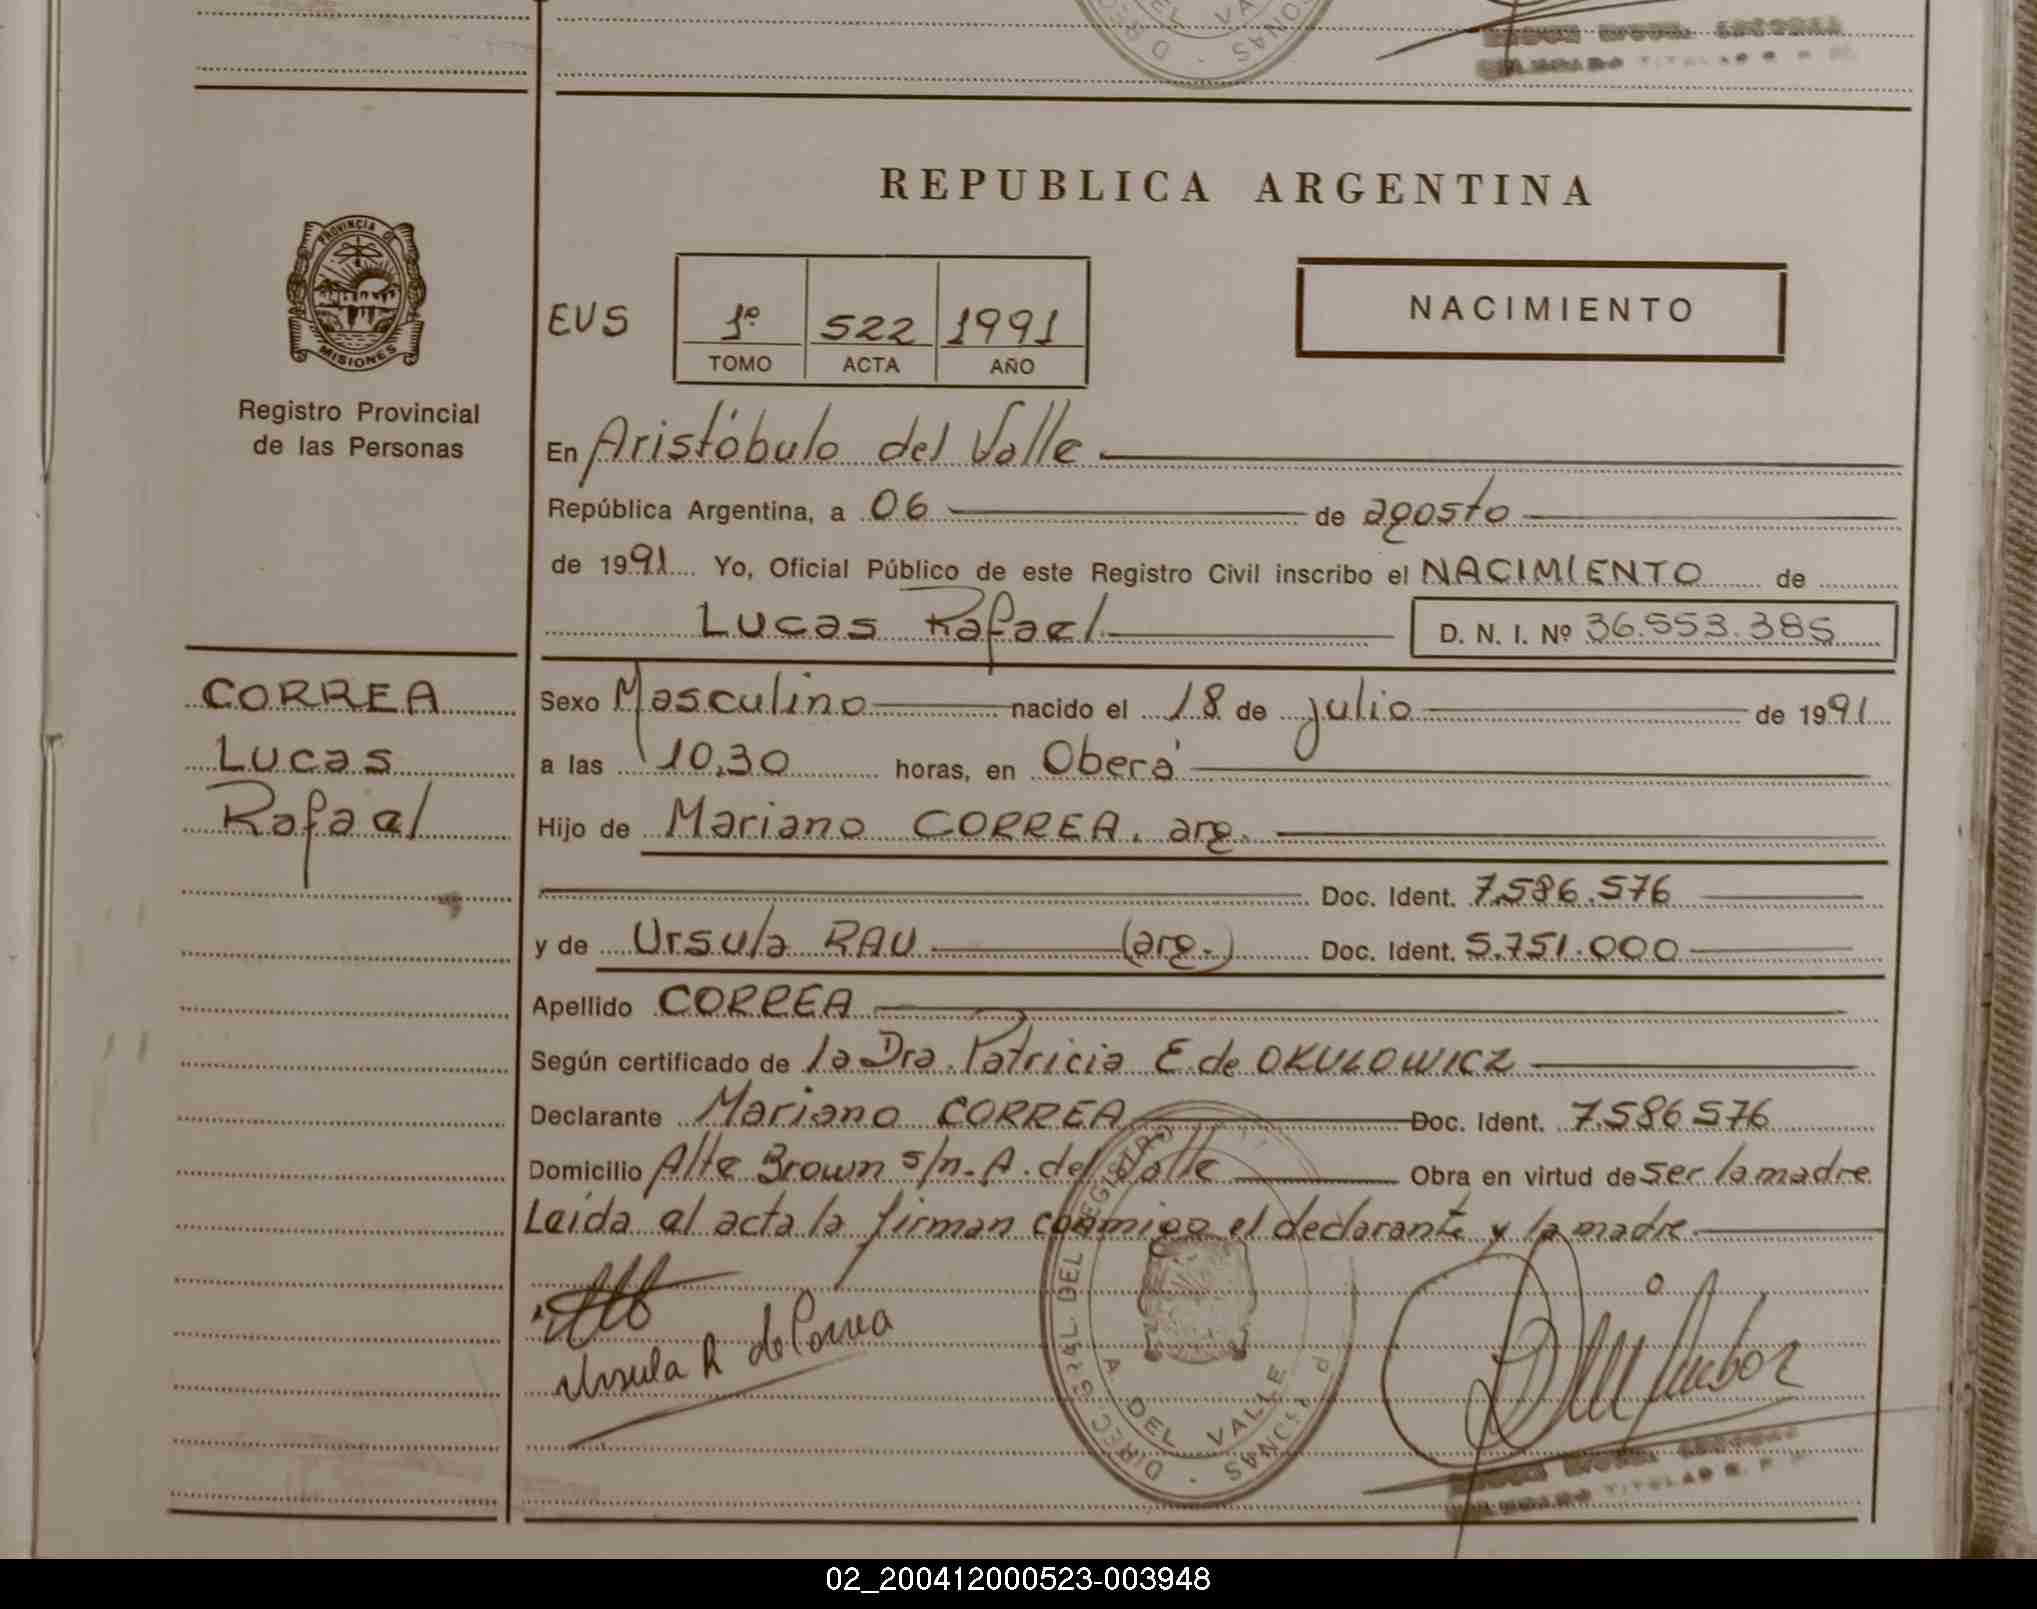 REPUBLICA ARGENTINA
PROVINCIA DE
MISIONES
Registro Provincial
de las Personas
EUS
1º 522 1991
TOMO ACTA AÑO
NACIMIENTO
En Aristóbulo del Valle
República Argentina, a 06 de agosto
de 1991 Yo, Oficial Público de este Registro Civil inscribo el NACIMIENTO de
Lucas Rafael D. N. I. Nº 36.553.385
CORREA
Lucas
Rafael
Sexo Masculino nacido el 18 de julio de 1991
a las 10,30 horas, en Oberá
Hijo de Mariano CORREA. arg.
Doc. Ident. 7.586.576
y de Ursula RAU (arg.) Doc. Ident. 5.751.000
Apellido CORREA
Según certificado de la Dra. Patricia E. de OKULOWICZ
Declarante Mariano CORREA Doc. Ident. 7.586576
Domicilio Alte Brown s/n. A. del Valle Obra en virtud de ser la madre
Leida el acta la firman conmigo el declarante y la madre
Ursula R de Correa
DEL VALLE
02_200412000523-003948